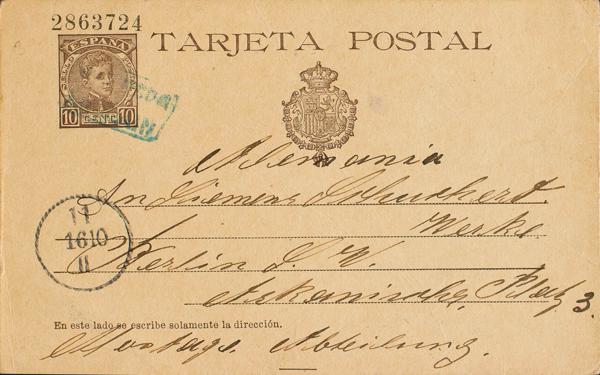 2863724
ESPAÑA
10 CENT 10
TARJETA POSTAL
Alemania
An Siemens Schuckert
Werke
Berlin S. W.
Askanischer Platz 3.
En este lado se escribe solamente la dirección.
Montage Abteilung.
11
1610
11